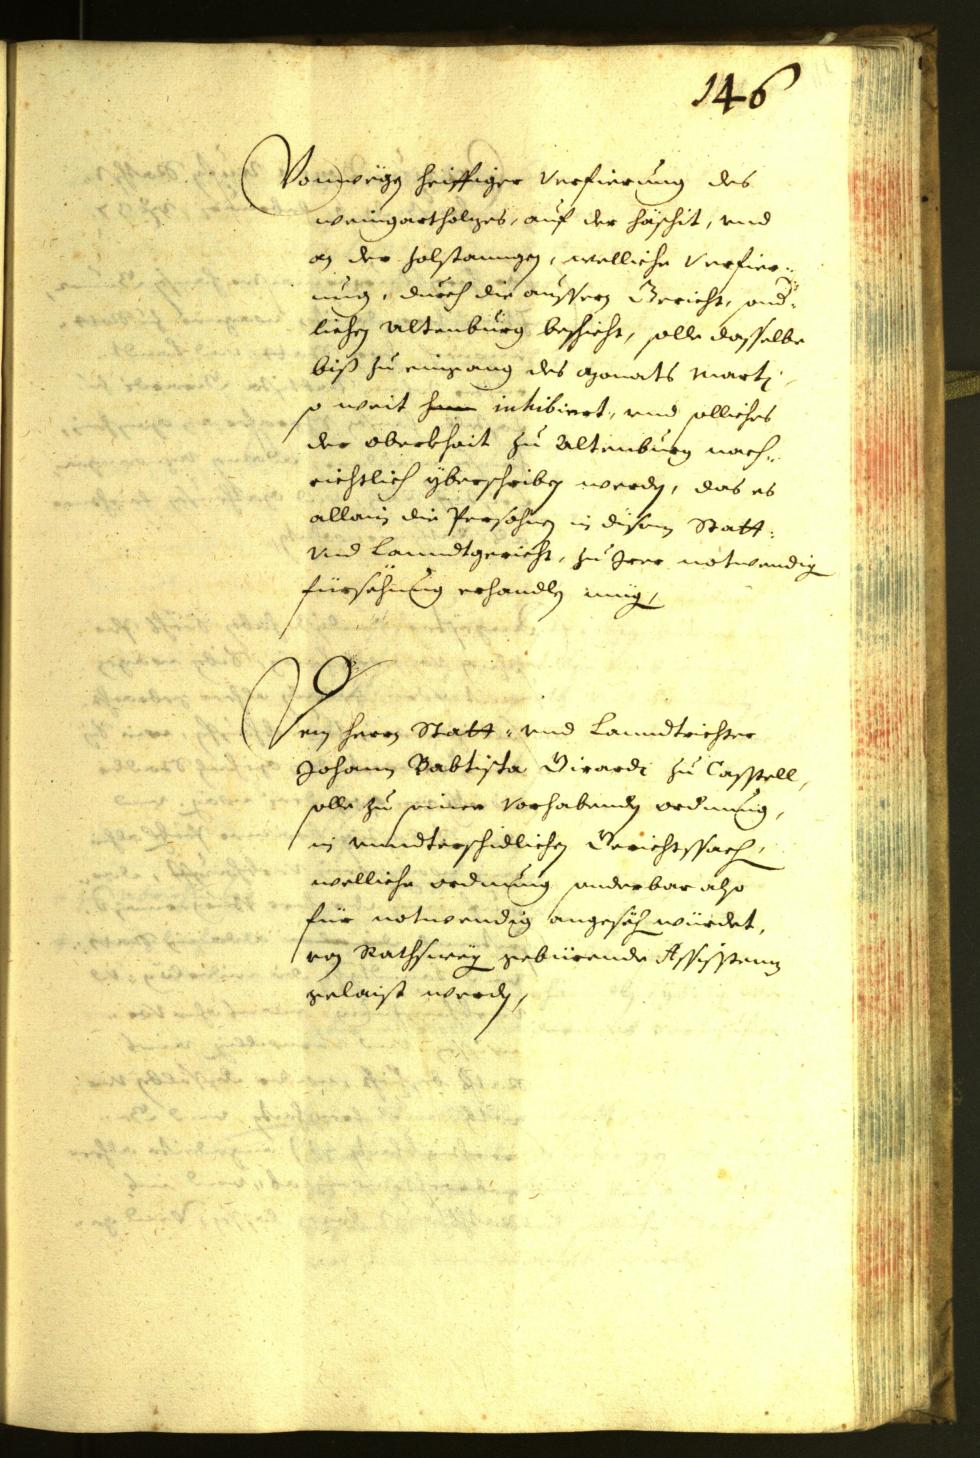 146
Vonwegen heiffiger Verfierung des
weingartholzes, auf der häschit, vnd
an der holstanngen, welliche Verfier¬
ung, durch die aussern Gericht, sond¬
lichen Altenburg beschicht, solle dasselbe
biß zu eingang des monats Martj
so weit inhibiert, vnd solliches
der oberkhait zu Altenburg nach¬
richtlich yberschriben werden, das es
allain die Persohnen in disem Statt¬
vnd Lanndtgericht, zu Irer notwendig
fürsehung erhandlen müg,
Dem herrn Statt- vnd Lanndtrichter
Johann Babtista Girardi zu Casstell,
solle zu seiner Vorhabenden ordnung,
in vnndterschidlichen Gerichtssach,
welliche ordnung sonderbar also
für notwendig angesäch würdet,
von Rathsweg gebürende Assistenz
gelaist werden,